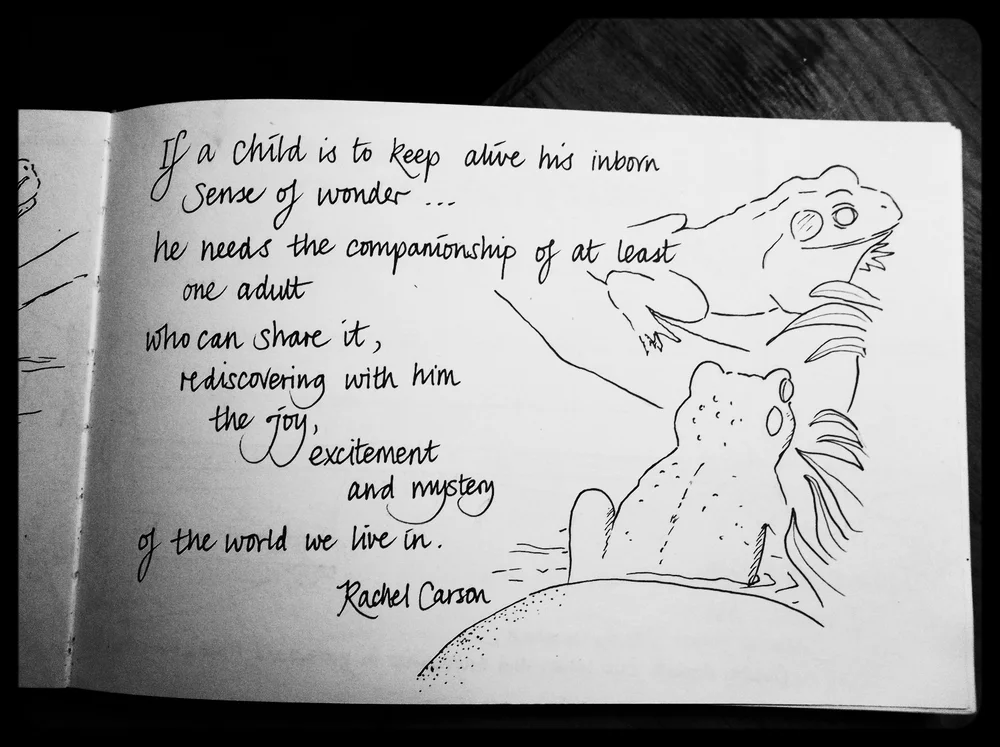 If a child is to keep alive his inborn
sense of wonder ...
he needs the companionship of at least
one adult
who can share it,
rediscovering with him
the joy,
excitement
and mystery
of the world we live in.
Rachel Carson